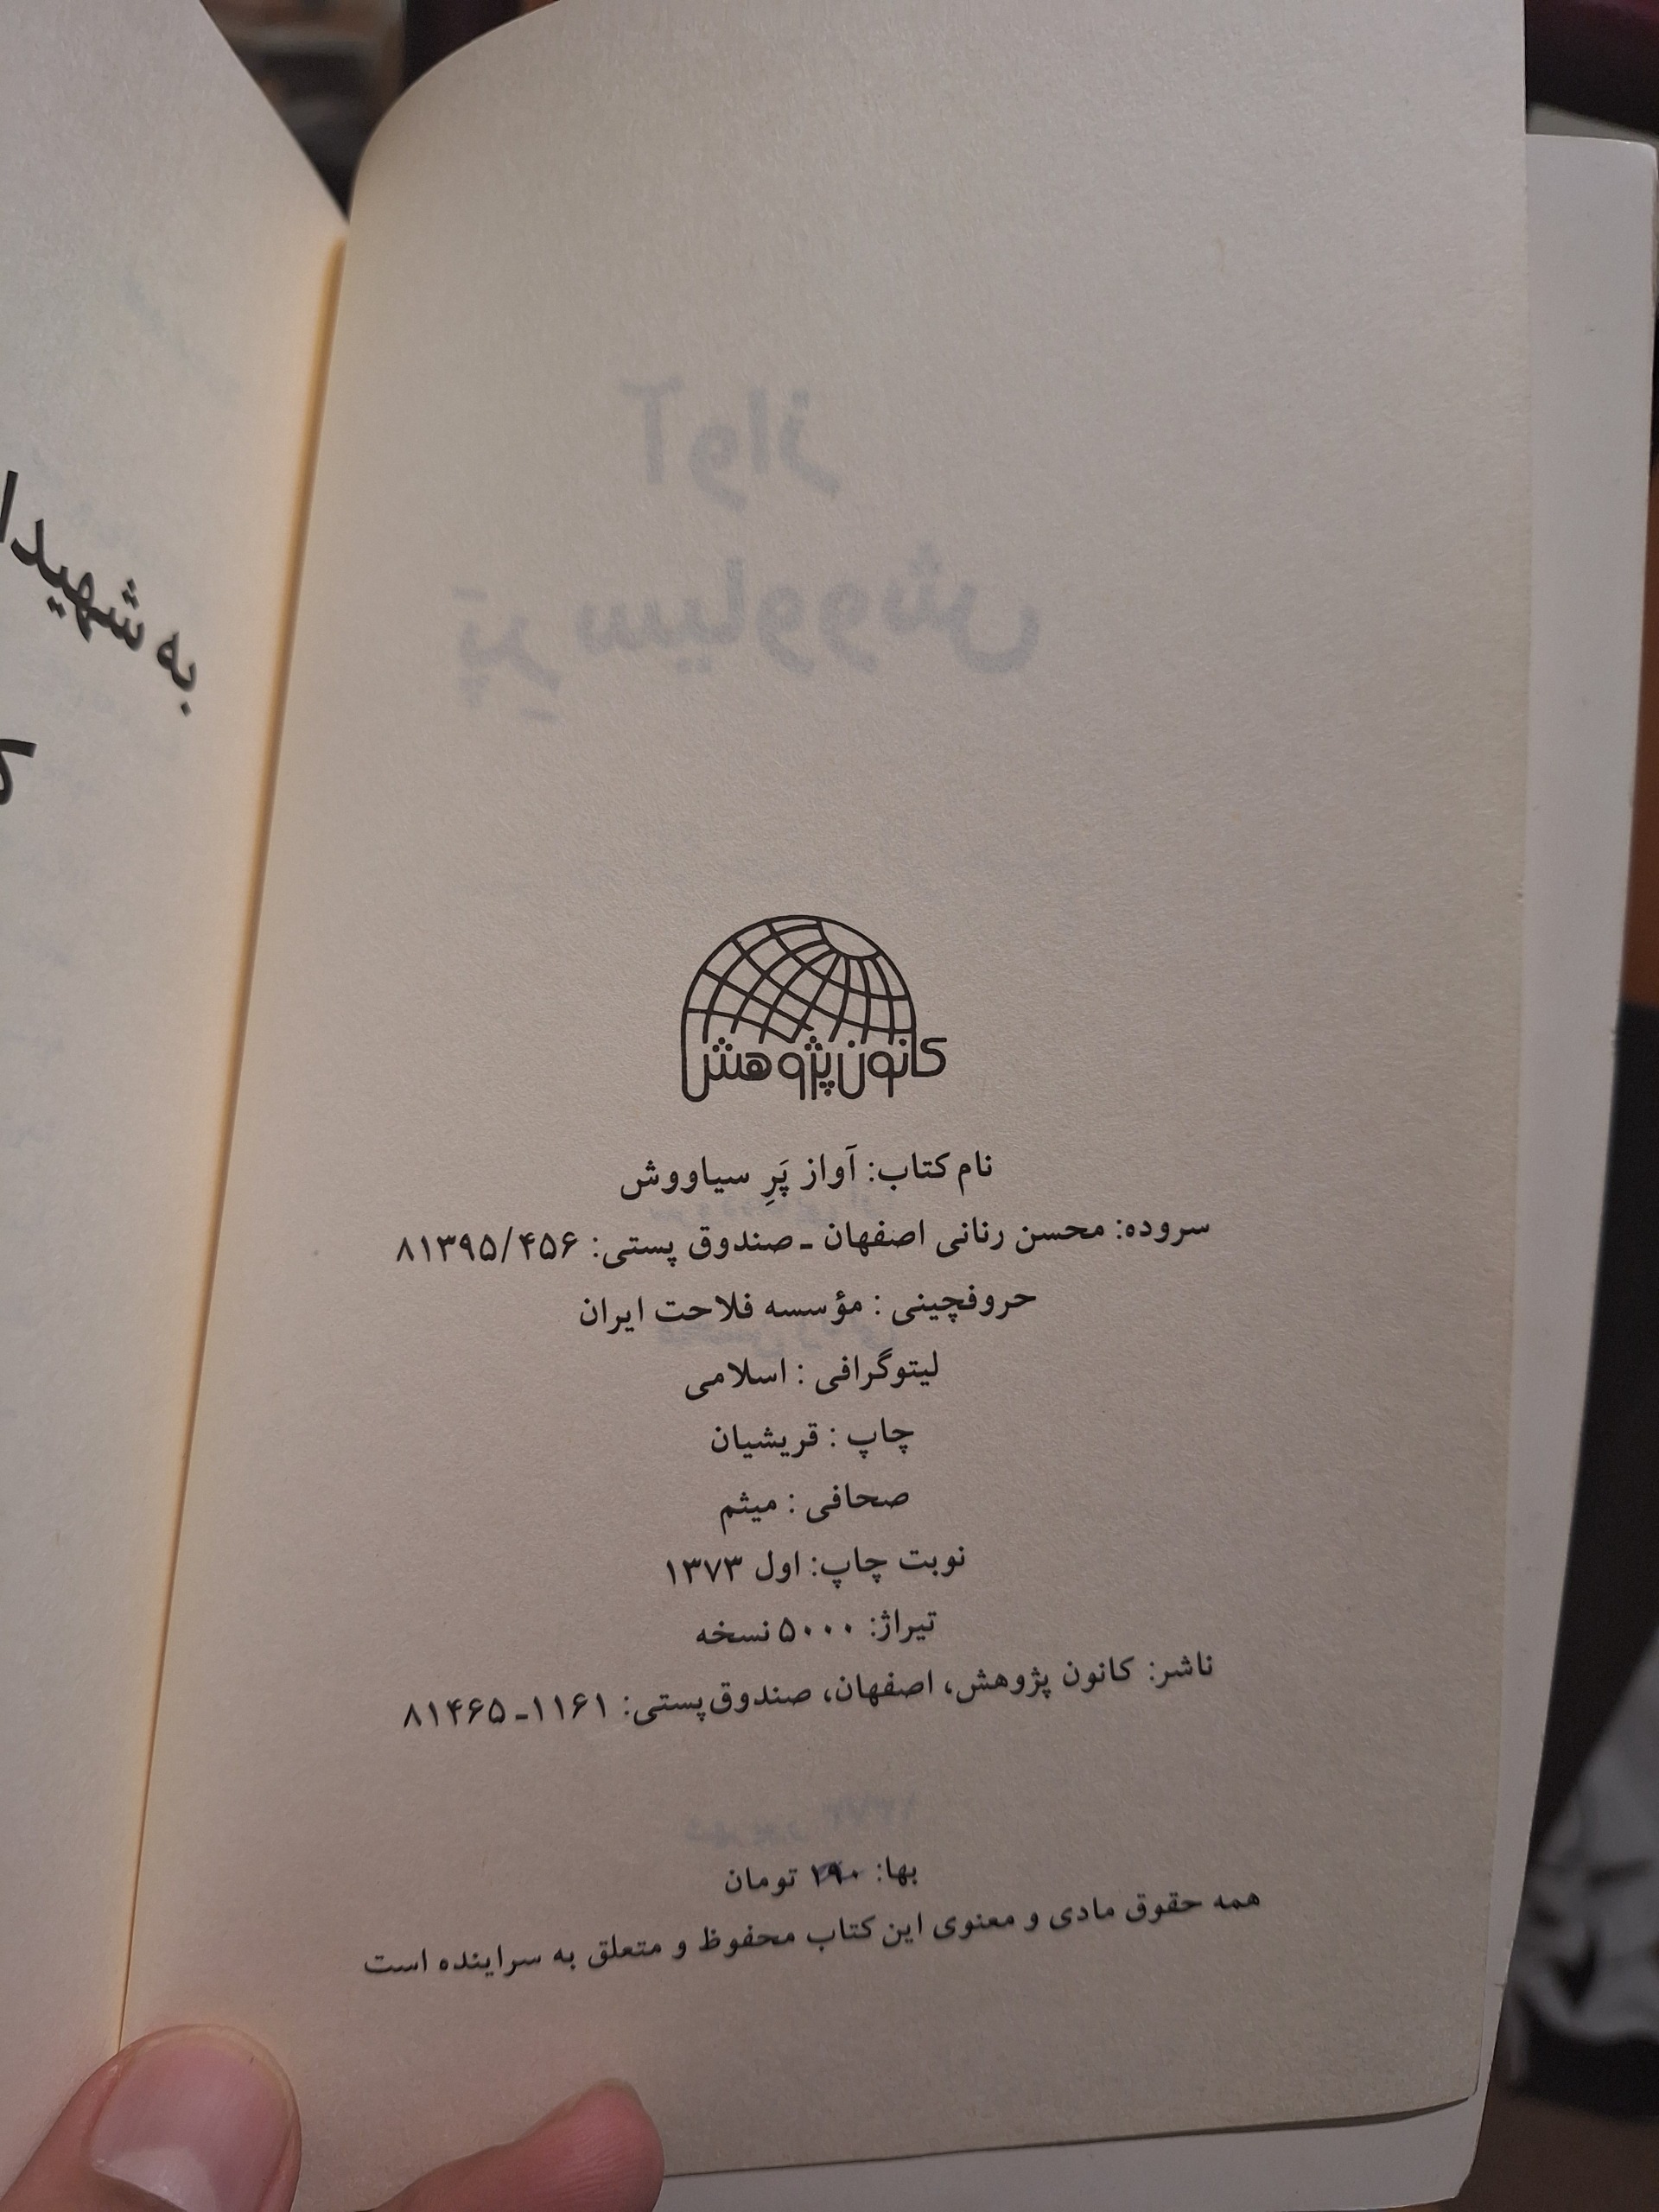 کانون پژوهش
نام کتاب: آواز پَرِ سیاووش
سروده: محسن رنانی اصفهان ـ صندوق پستی: ۸۱۳۹۵/۴۵۶
حروفچینی : مؤسسه فلاحت ایران
لیتوگرافی : اسلامی
چاپ : قریشیان
صحافی : میثم
نوبت چاپ: اول ۱۳۷۳
تیراژ: ۵۰۰۰ نسخه
ناشر: کانون پژوهش، اصفهان، صندوق‌پستی: ۱۱۶۱ـ ۸۱۴۶۵
بها: ۱۹۰ تومان
همه حقوق مادی و معنوی این کتاب محفوظ و متعلق به سراینده است
به